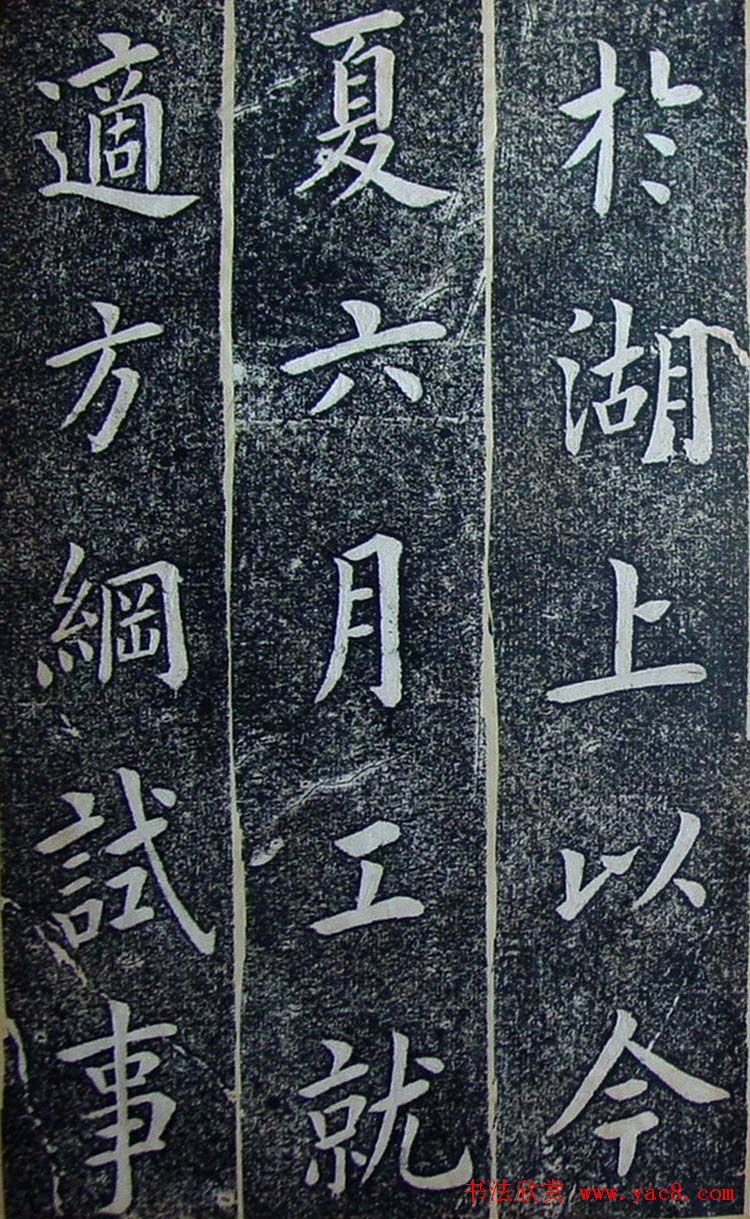 於湖上以今
夏六月工就
適方綱試事
书法欣赏 www.yac8.com